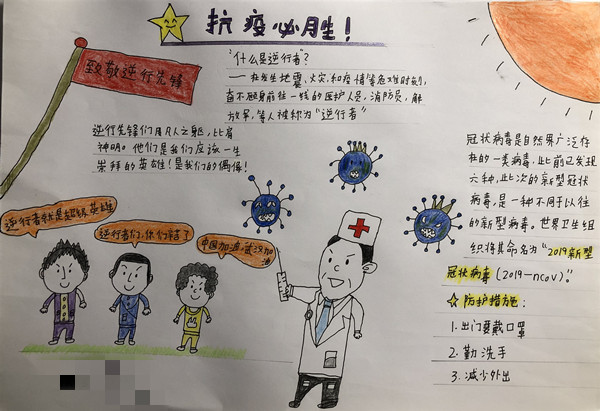 抗疫必胜！
致敬逆行先锋
"什么是逆行者"？
——在发生地震、火灾和疫情等危难时刻，
奋不顾身前往一线的医护人员，消防员，解
放军，等人被称为"逆行者"
逆行先锋们用凡人之躯，比肩
神明。他们是我们应该一生
崇拜的英雄！是我们的偶像！
逆行者就是超级英雄
逆行者们，你们辛苦了
中国加油，武汉加
油
冠状病毒是自然界广泛存
在的一类病毒，此前已发现
六种，此次的新型冠状
病毒，是一种不同于以往
的新型病毒，世界卫生组
织将其命名为"2019新型
冠状病毒（2019-nCoV）"。
防护措施：
1.出门要戴口罩
2.勤洗手
3.减少外出